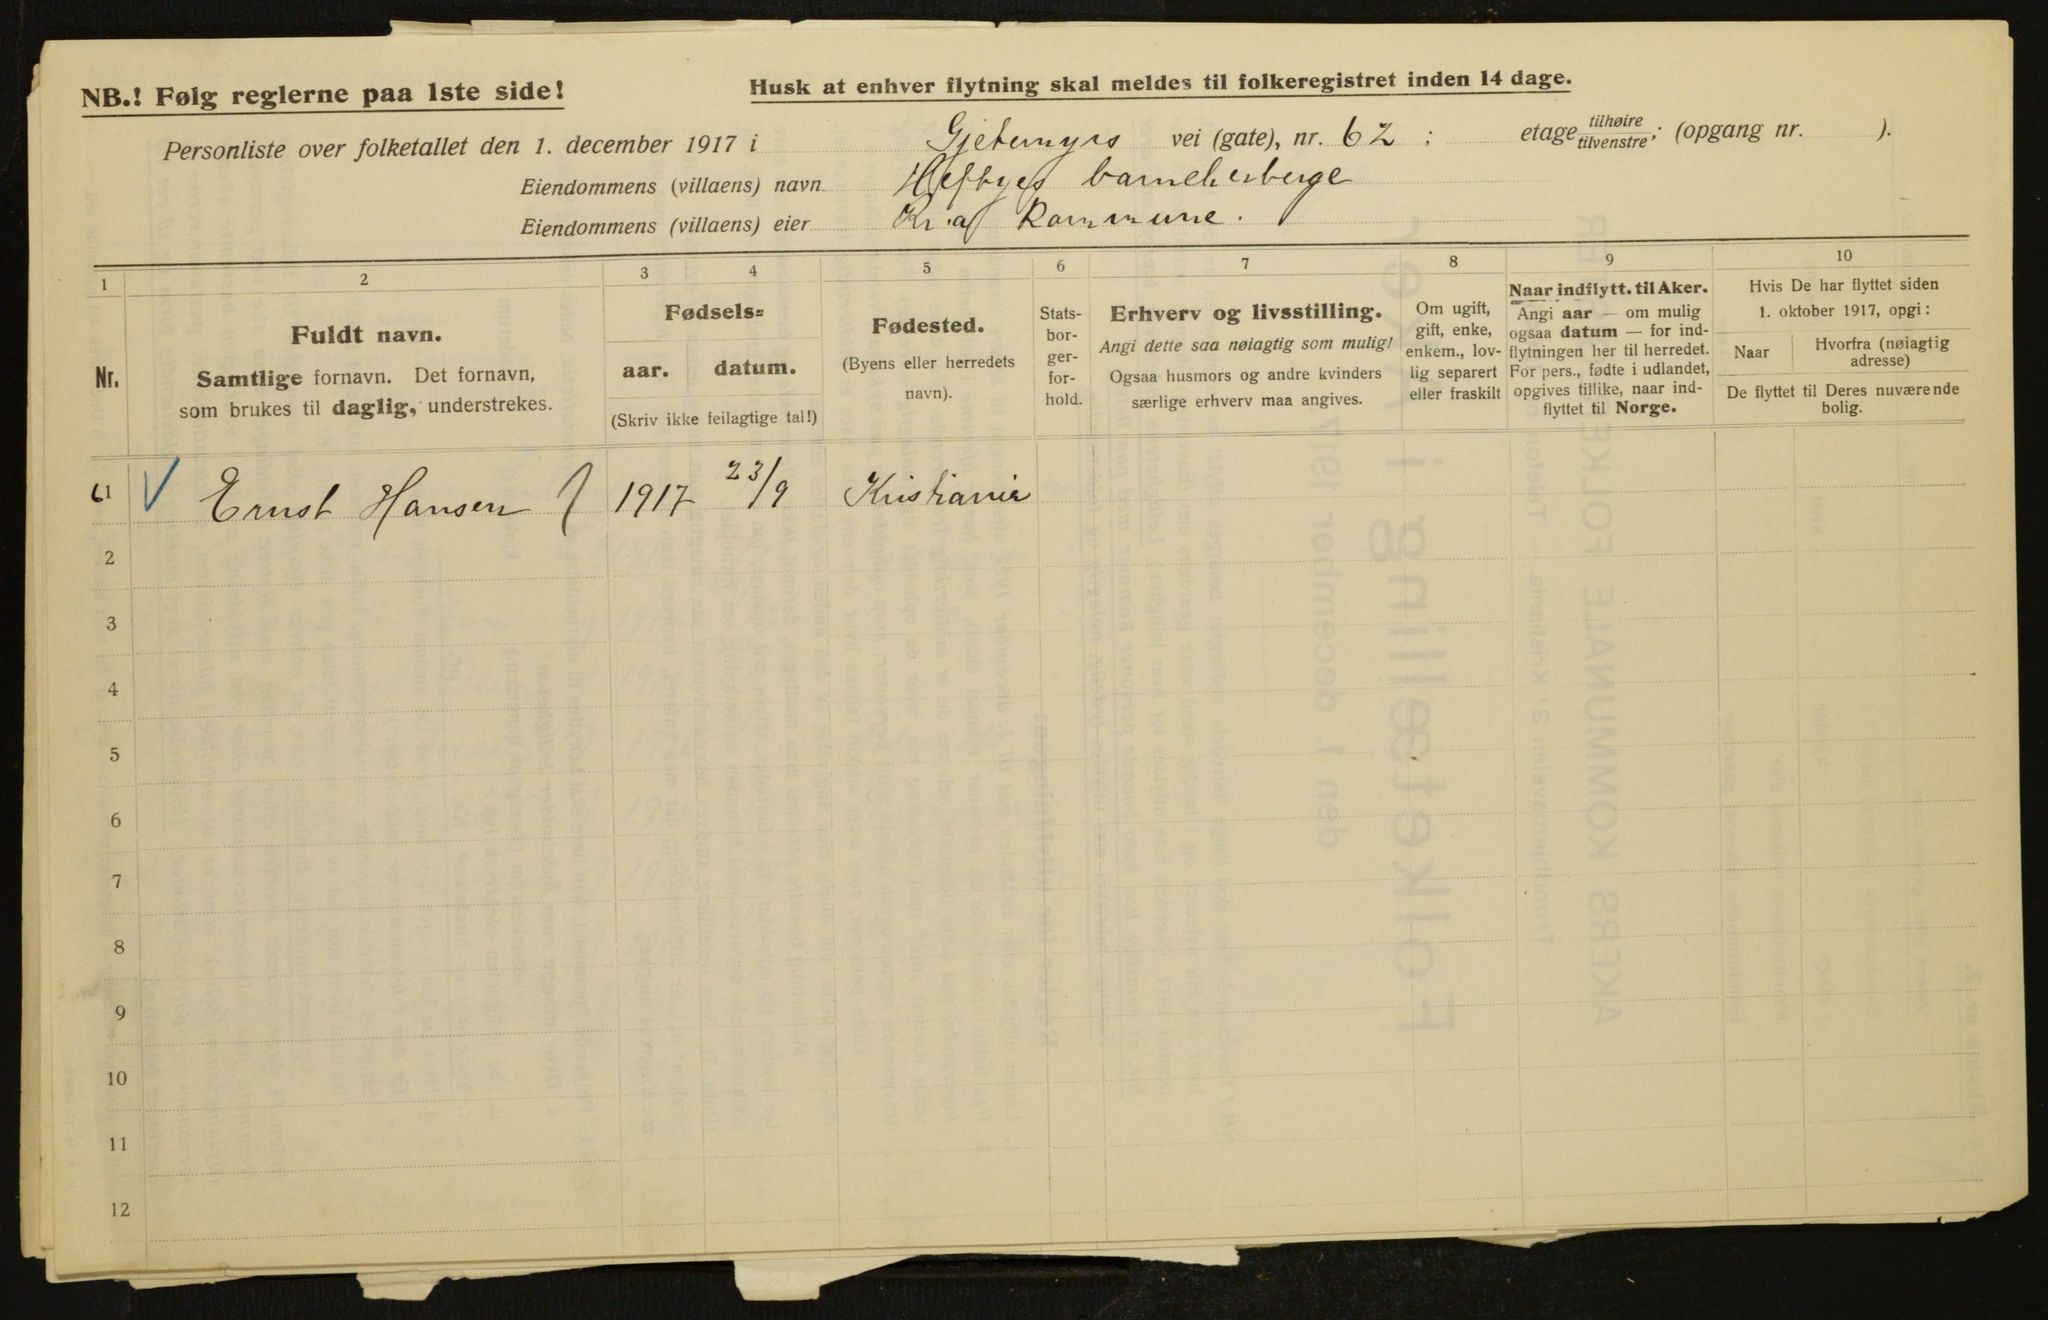 NB.! Følg reglerne paa 1ste side!
Husk at enhver flytning skal meldes til folkeregistret inden 14 dage.
Personliste over folketallet den 1. december 1917 i Gjetemyrs vei (gate), nr. 62 ; etage tilhøire tilvenstre ; (opgang nr. ).
Eiendommens (villaens) navn Heftyes barneherberge
Eiendommens (villaens) eier Kr.a kommune.
1 2 3 4 5 6 7 8 9 10
Nr.
Fuldt navn.
Samtlige fornavn. Det fornavn,
som brukes til daglig, understrekes.
Fødsels-
aar. datum.
(Skriv ikke feilagtige tal!)
Fødested.
(Byens eller herredets
navn).
Stats-
bor-
ger-
for-
hold.
Erhverv og livsstilling.
Angi dette saa nøiagtig som mulig!
Ogsaa husmors og andre kvinders
særlige erhverv maa angives.
Om ugift,
gift, enke,
enkem., lov-
lig separert
eller fraskilt
Naar indflytt. til Aker.
Angi aar — om mulig
ogsaa datum — for ind-
flytningen her til herredet.
For pers., fødte i udlandet,
opgives tillike, naar ind-
flyttet til Norge.
Hvis De har flyttet siden
1. oktober 1917, opgi:
Naar
Hvorfra (nøiagtig
adresse)
De flyttet til Deres nuværende
bolig.
61 Ernst Hansen 1917 23/9 Kristiania
2
3
4
5
6
7
8
9
10
11
12